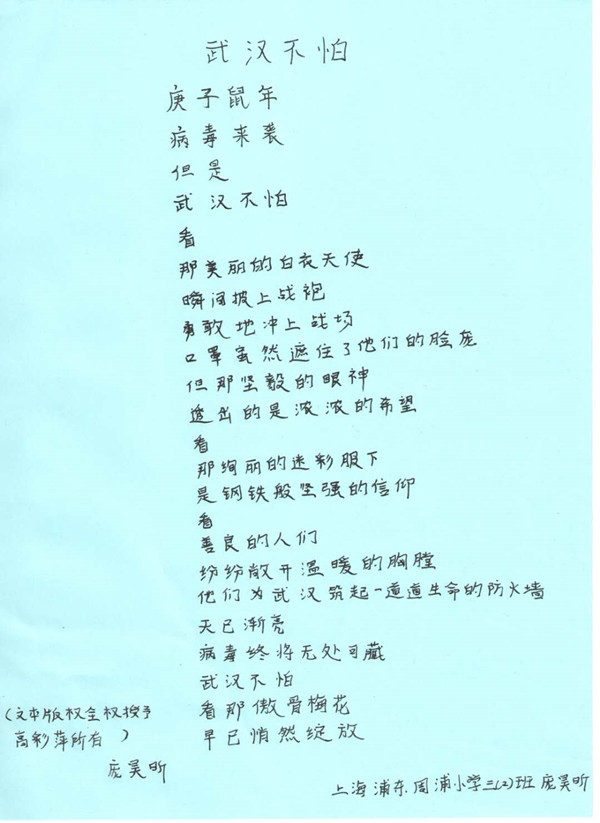 武汉不怕
庚子鼠年
病毒来袭
但是
武汉不怕
看
那美丽的白衣天使
瞬间披上战袍
勇敢地冲上战场
口罩虽然遮住了他们的脸庞
但那坚毅的眼神
透出的是浓浓的希望
看
那绚丽的迷彩服下
是钢铁般坚强的信仰
看
善良的人们
纷纷敞开温暖的胸膛
他们为武汉筑起一道道生命的防火墙
天已渐亮
病毒终将无处可藏
武汉不怕
看那傲骨梅花
早已悄然绽放
(文本版权全权授予
高彩萍所有 )
庞昊昕
上海浦东周浦小学三(2)班 庞昊昕